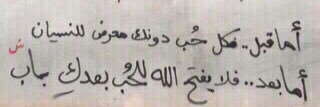 أما قبل.. فكل حُب دونك معرض للنسيان
أما بعد.. فلا يفتح الله للحُب بعدكِ باب